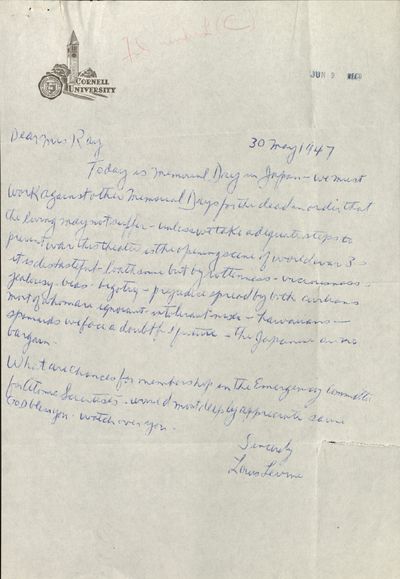 JUN 9 REC'D
CORNELL
UNIVERSITY
Dear Mrs Ray
30 May 1947
Today is Memorial Day in Japan - we must
work against other Memorial Days for the dead in order that
the living may not suffer - unless we take adequate steps to
prevent war this theater is the opening scene of world war 3 -
it is distasteful - loathsome but by bitterness - viciousness -
jealousy - bias - bigotry - prejudice spread by both civilians
most of whom are ignorant - intolerant - Hawaiians -
we face a doubtful future - the Japanese are no
bargain.
What are chances for membership in the Emergency Committee
for Atomic Scientists - would most deeply appreciate same
God bless you - watch over you.
Sincerely
Louis Levine